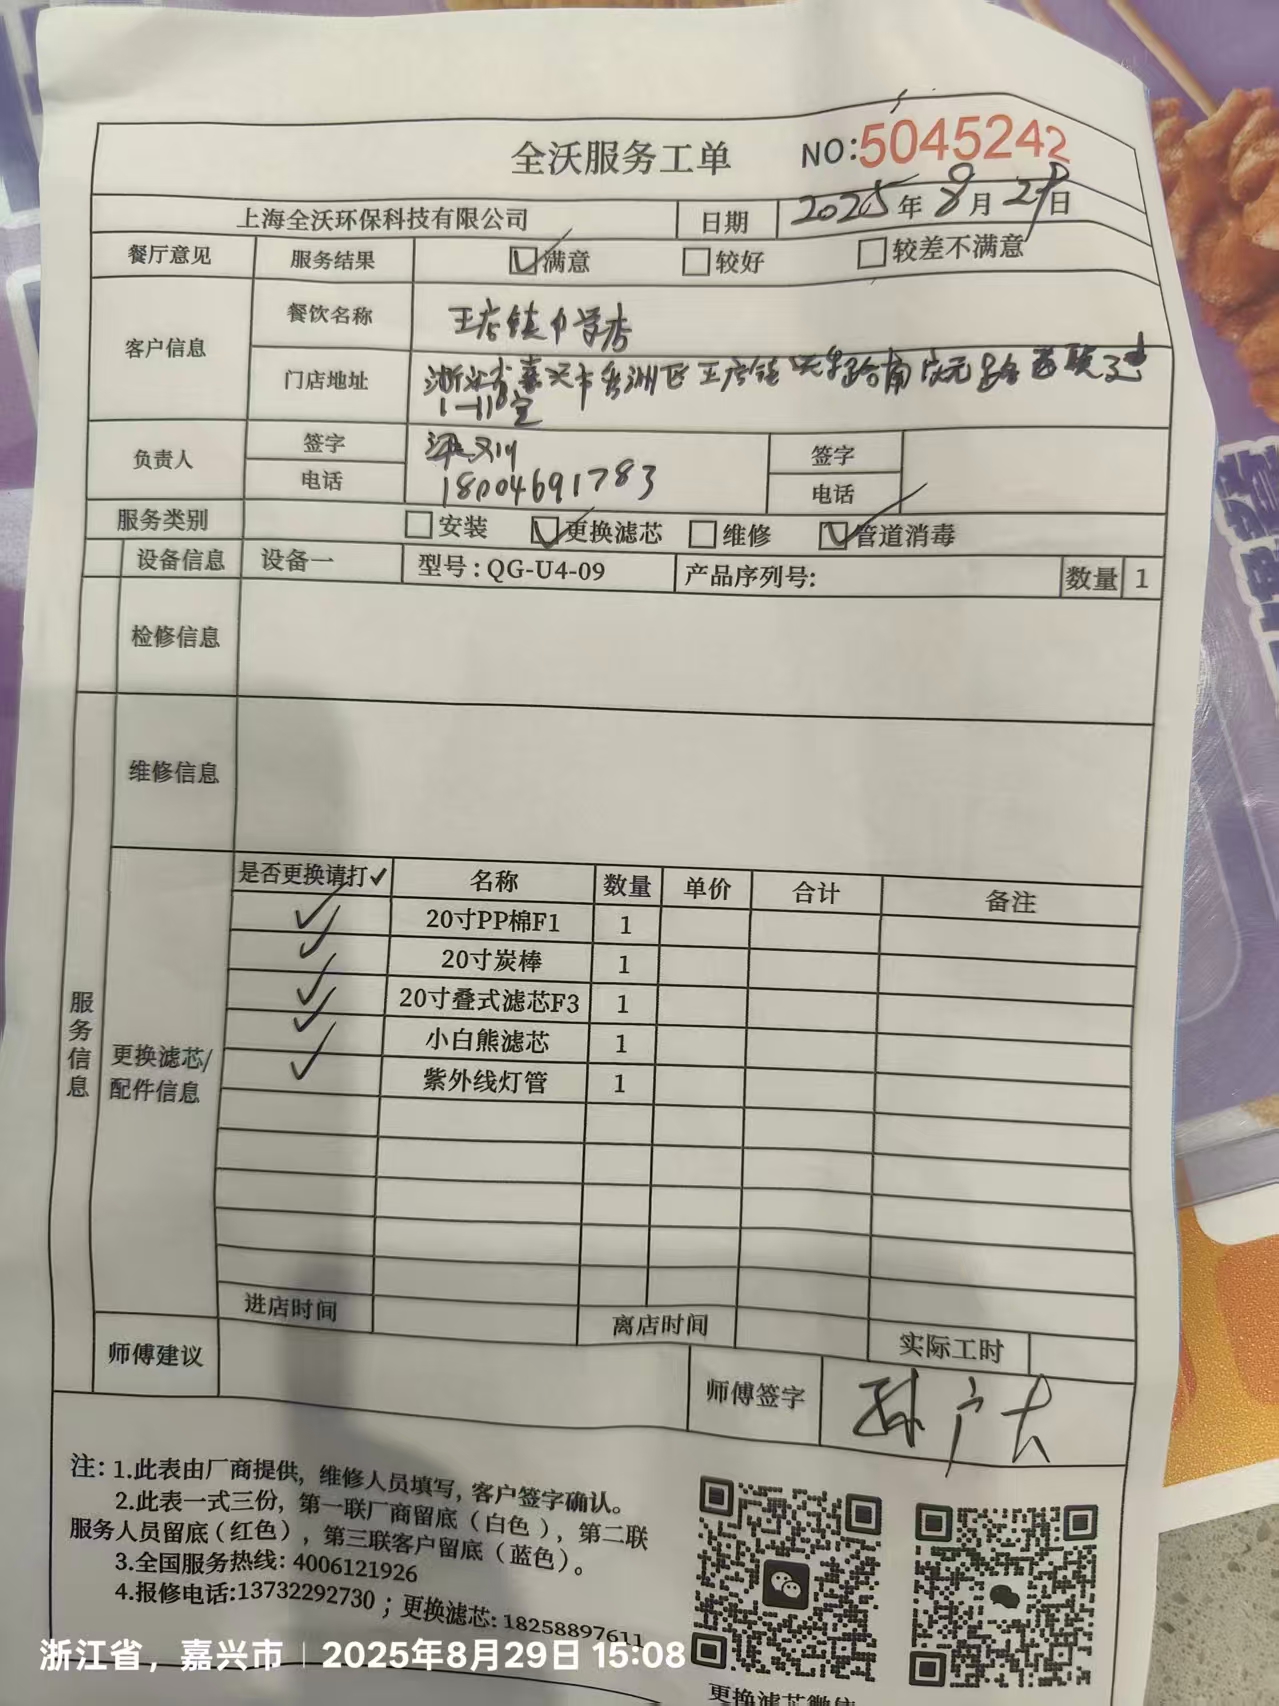 全沃服务工单 NO:5045242
上海全沃环保科技有限公司 日期 2025年8月29日
餐厅意见 服务结果 满意 较好 较差不满意
客户信息
餐饮名称 王店镇中学店
门店地址 浙江省嘉兴市秀洲区王店镇 路南 元路西联建
1-110室
负责人
签字 签字
电话 18004691783 电话
服务类别 安装 更换滤芯 维修 管道消毒
设备信息 设备一 型号:QG-U4-09 产品序列号: 数量 1
检修信息
维修信息
服务信息
更换滤芯/
配件信息
是否更换请打✓ 名称 数量 单价 合计 备注
✓ 20寸PP棉F1 1
✓ 20寸炭棒 1
✓ 20寸叠式滤芯F3 1
✓ 小白熊滤芯 1
✓ 紫外线灯管 1
进店时间 离店时间 实际工时
师傅建议 师傅签字 孙广大
注:1.此表由厂商提供,维修人员填写,客户签字确认。
2.此表一式三份,第一联厂商留底(白色),第二联
服务人员留底(红色),第三联客户留底(蓝色)。
3.全国服务热线:4006121926
4.报修电话:13732292730;更换滤芯:18258897611
更换滤芯微信
浙江省,嘉兴市 2025年8月29日 15:08